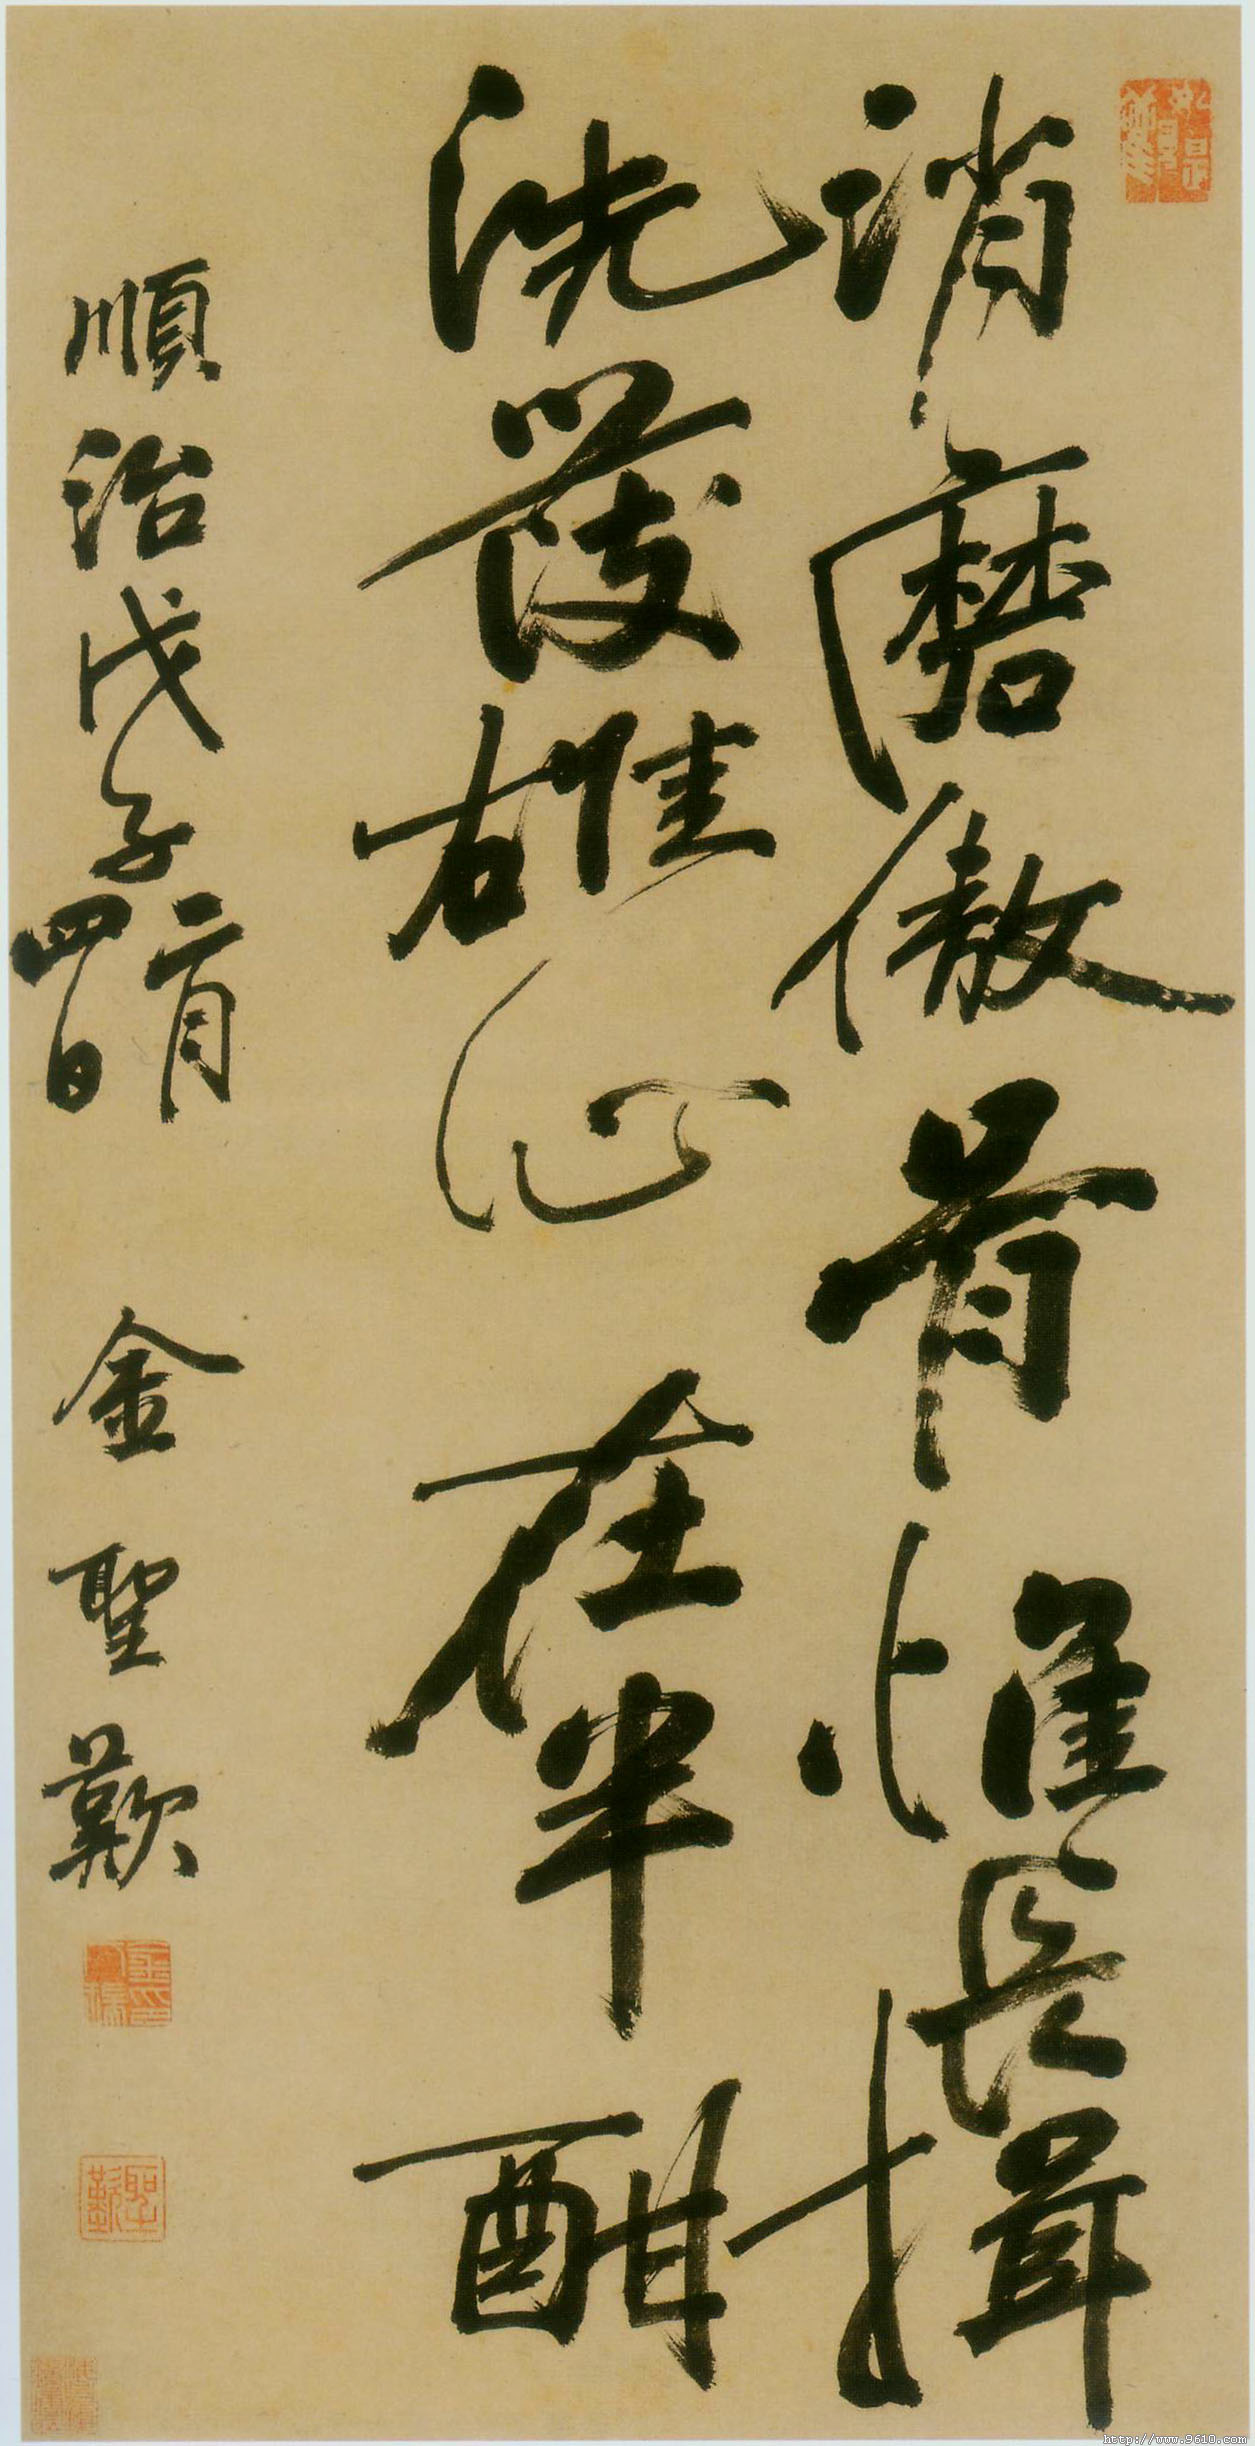 消磨傲骨惟長揖
洗發雄心在半酣
順治戊子二月四日 金聖歎
聖歎
http://www.9610.com